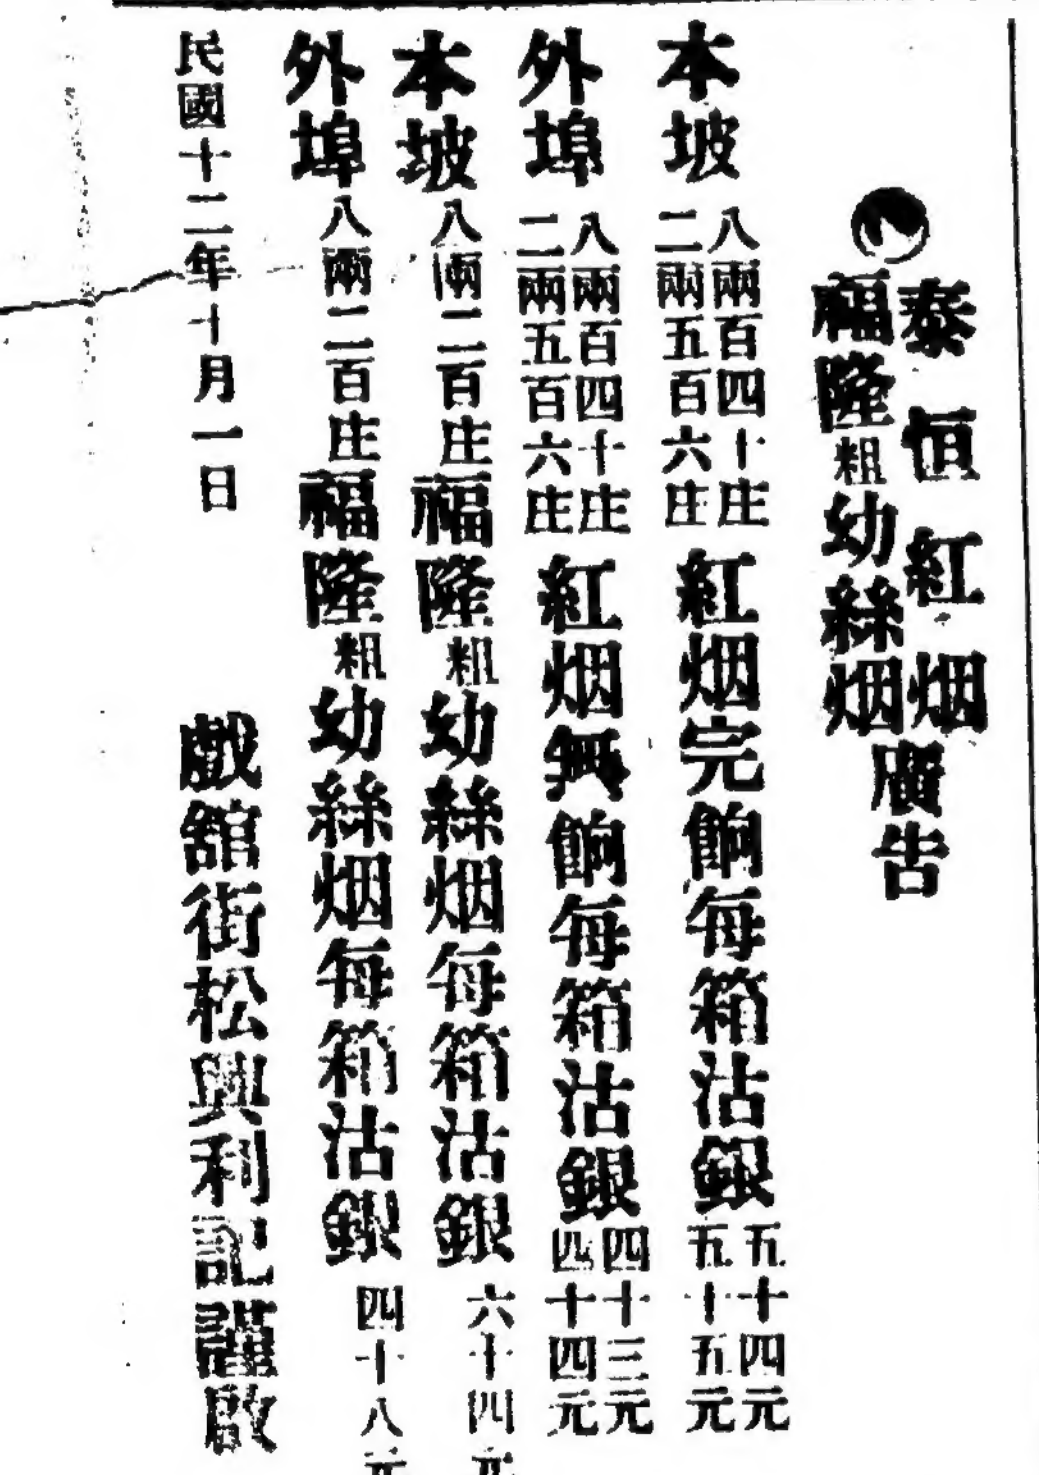 泰恒紅烟
福隆粗幼絲烟
廣告
本坡
八兩百四十庄
二兩五百六庄
紅烟完餉每箱沽銀
五十四元
五十五元
外埠
八兩百四十庄
二兩五百六庄
紅烟無餉每箱沽銀
四十三元
四十四元
本坡八兩二百庄福隆粗幼絲烟每箱沽銀六十四元
外埠八兩二百庄福隆粗幼絲烟每箱沽銀四十八元
民國十二年十月一日
戲舘街松興利記謹啟